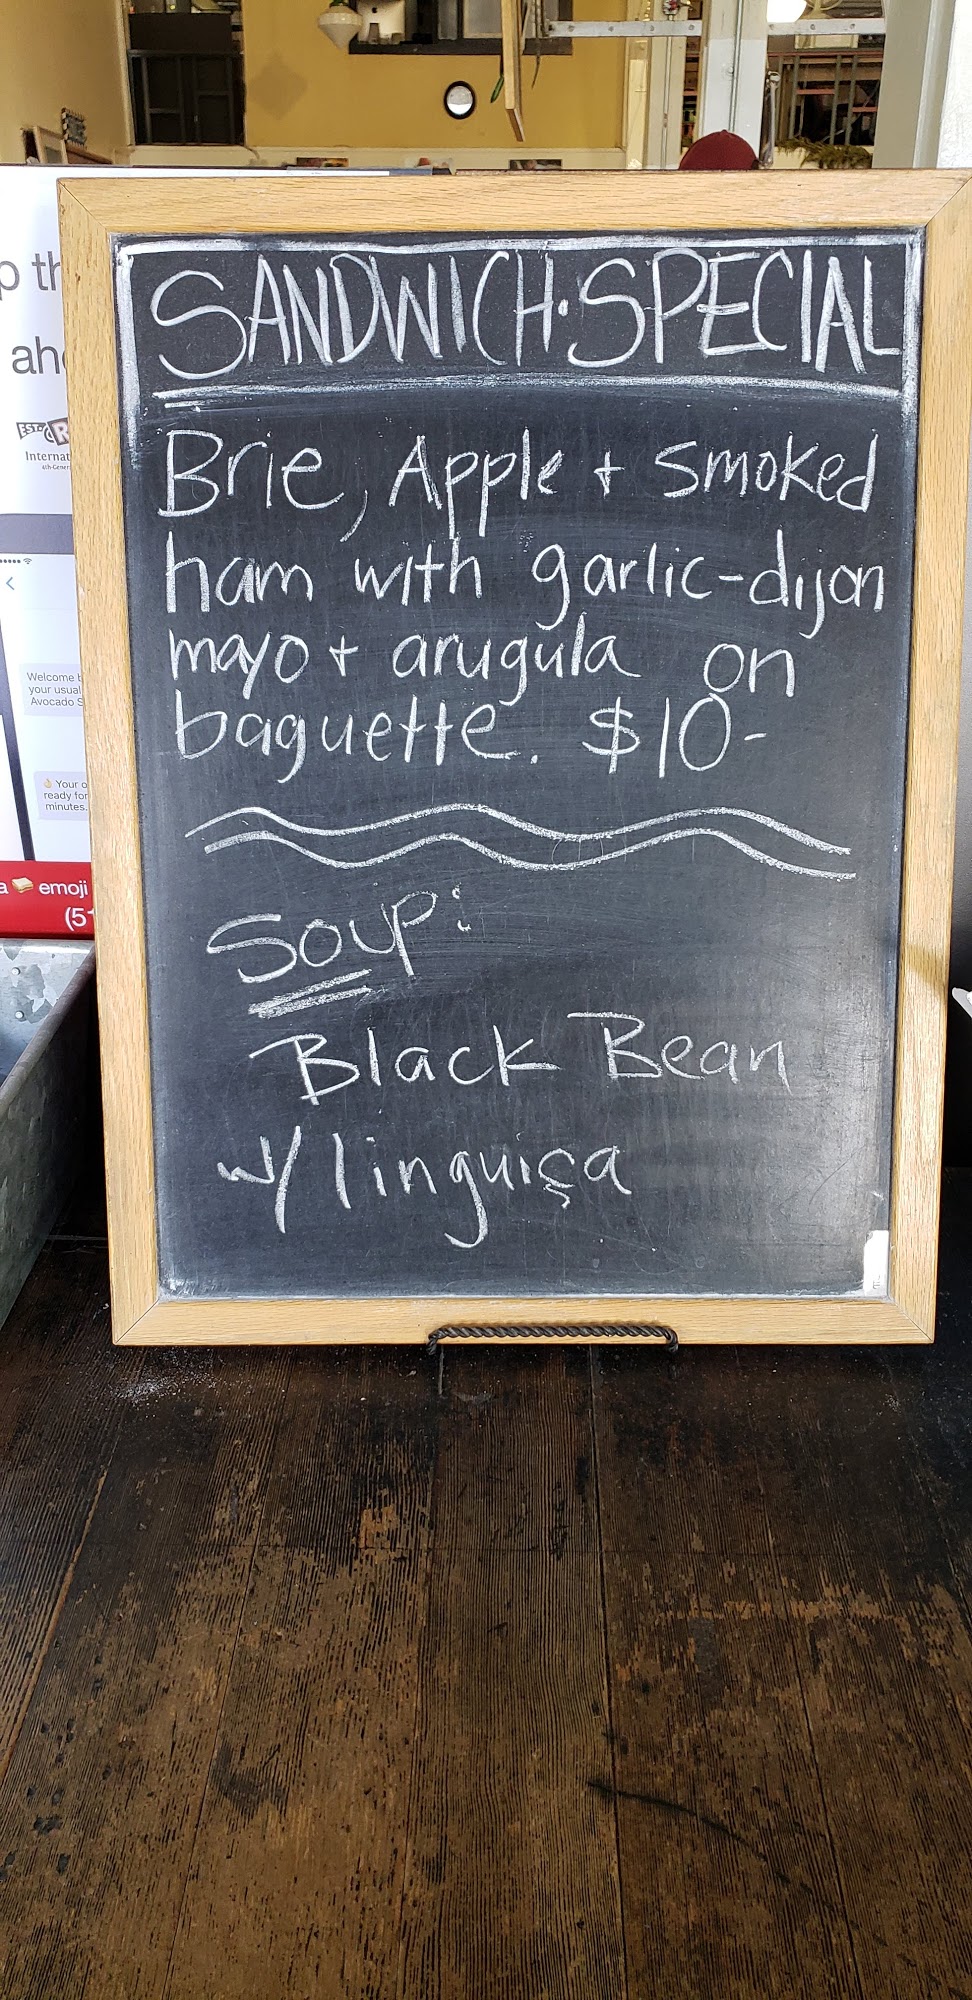 SANDWICH·SPECIAL
Brie, Apple + smoked
ham with garlic-dijon
mayo + arugula on
baguette. $10-
Soup:
Black Bean
w/ linguiça
p th
ahe
EST. & R
Internat
4th-Gener
Welcome t
your usual
Avocado S
👌 Your o
ready for
minutes.
a 🥪 emoji
(51